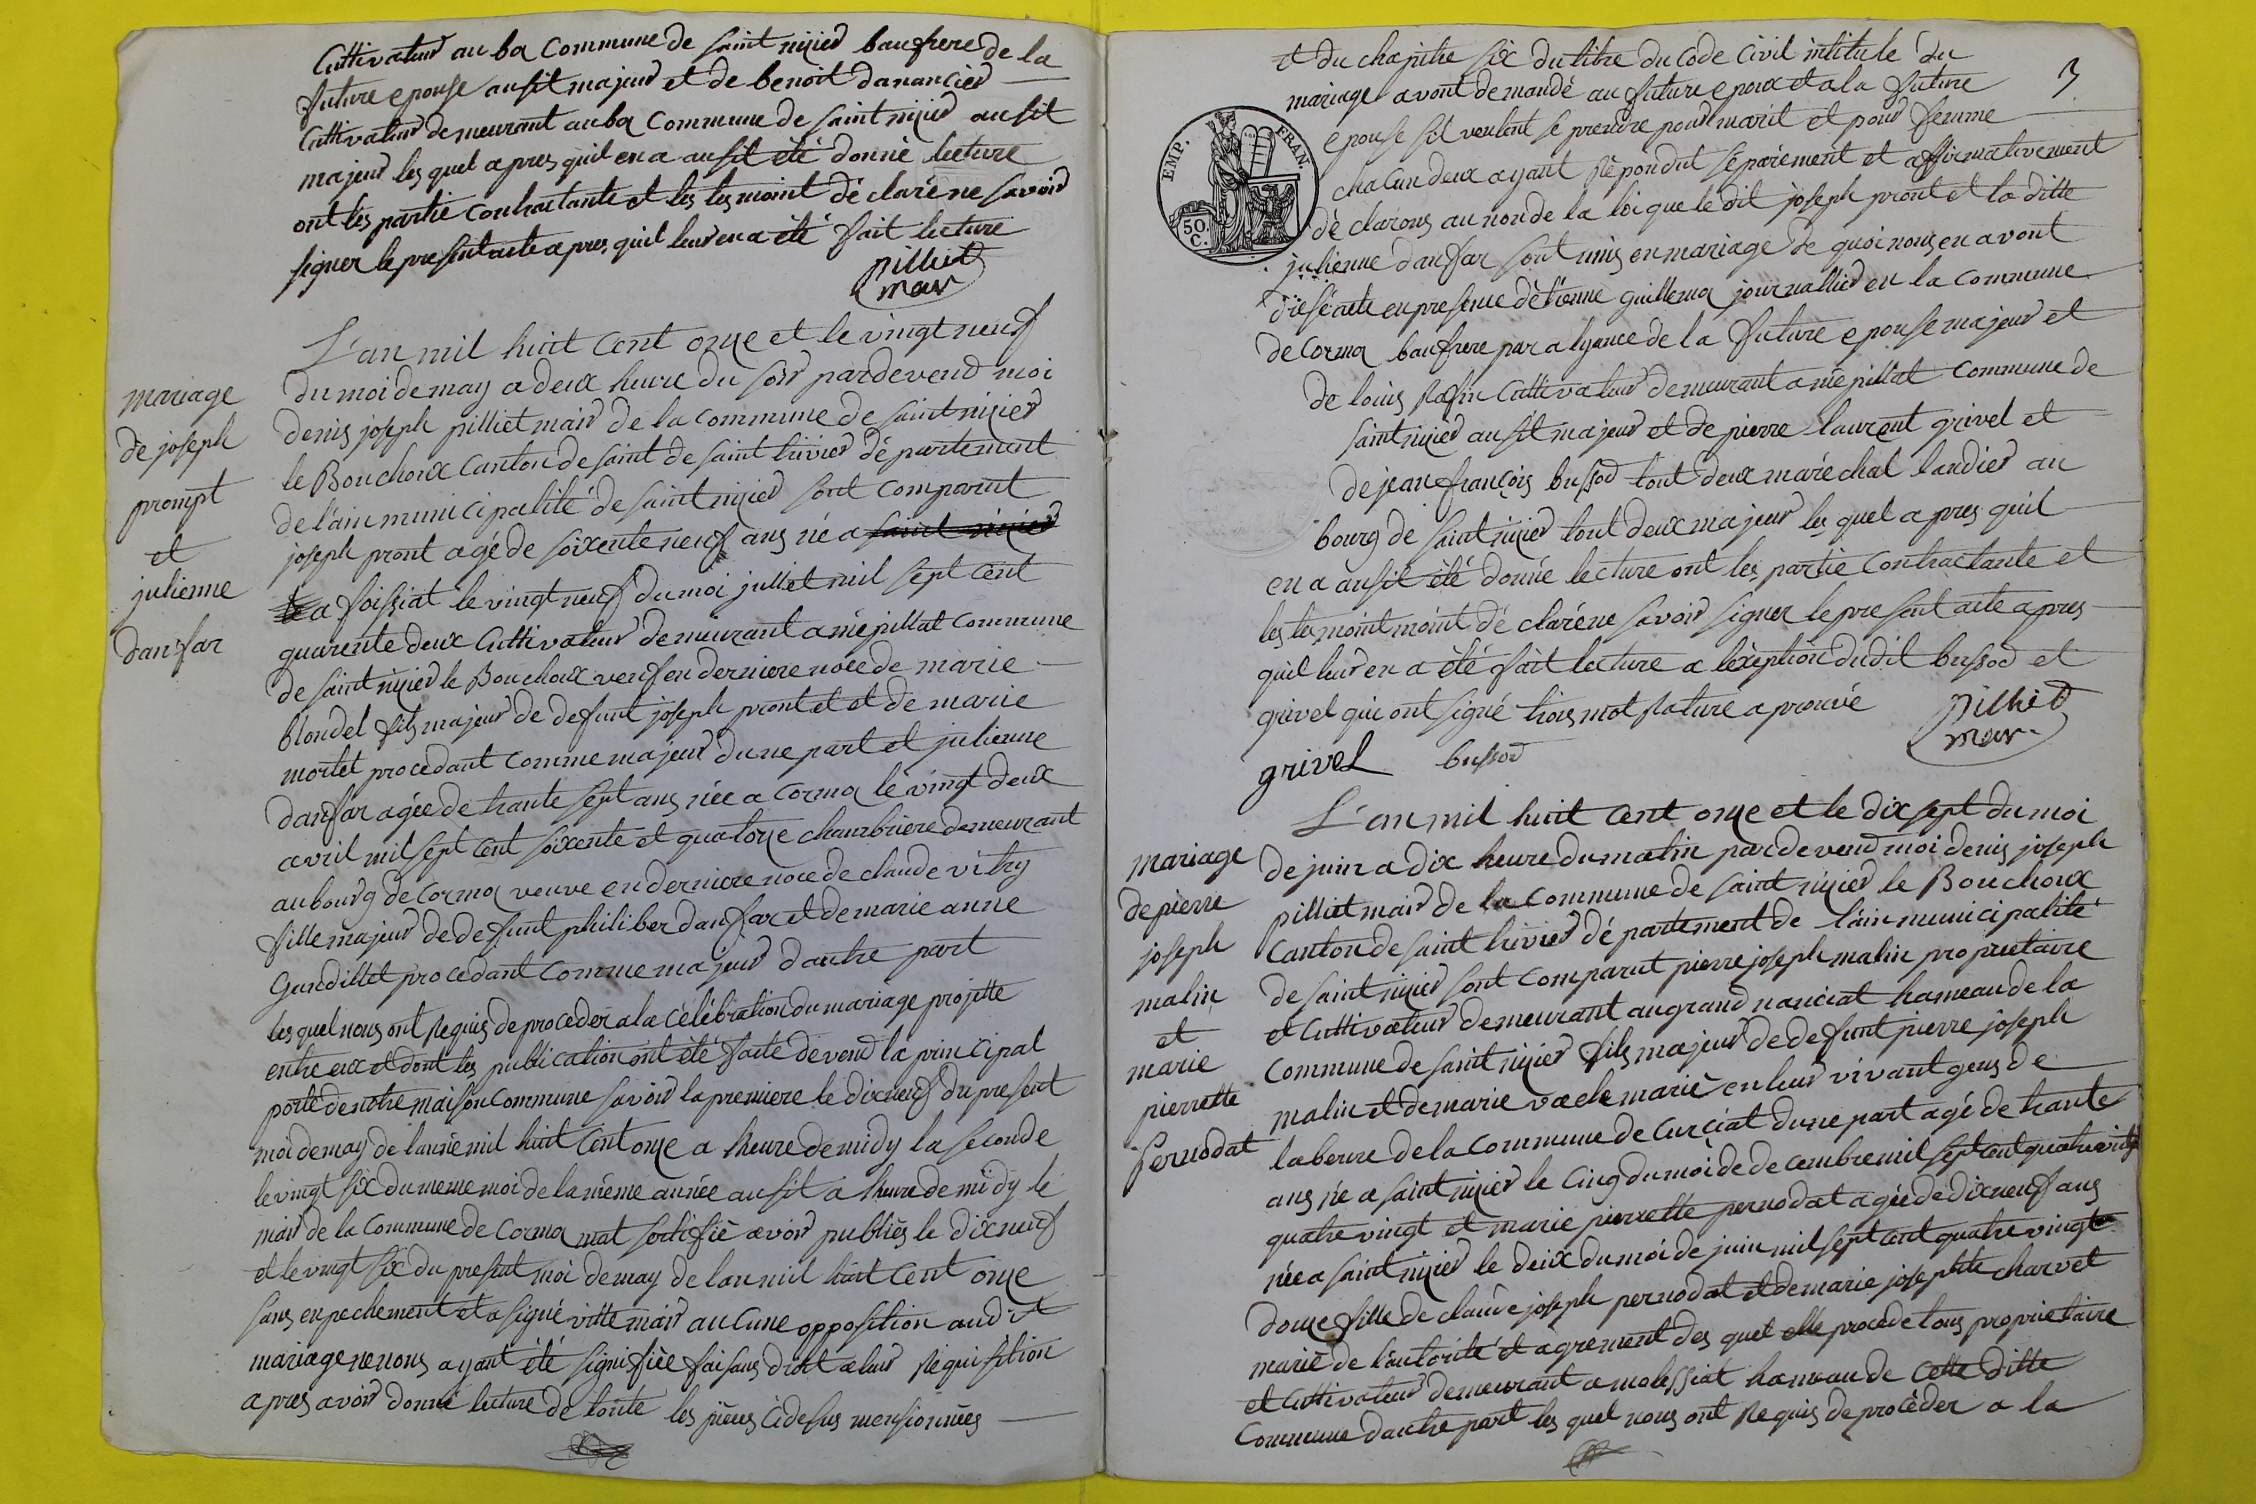 Cuttivateur au ba Commune de saint nizier baufrere de la
future epouse ausit majeur et de benoit danancier
Cuttivateur demeurant au ba Commune de saint nizier ausit
majeur les quel apres quil en a ausit été donné lecture
ont les partie Contractante et les tesmoint déclaré ne savoir
signer le present acte apres quil leur en a été fait lecture
pilliet
mair
mariage
de joseph
prompt
et
julienne
danfar
L'an mil huit Cent onze et le vingt neuf
du moi de may a deux heure du soir pardevend moi
denis joseph pilliet mair de la commune de saint nizier
le Bouchoux Canton de saint de saint trivier département
de l'ain municipalité de saint nizier sont comparut
joseph pront agé de soixente neuf ans né a saint nizier
a foissiat le vingt neuf du moi juillet mil sept cent
quarente deux Cuttivateur demeurant a mépillat commune
de saint nizier le Bouchoux veuf en derniere noce de marie
blondel fils majeur de defunt joseph pront et et de marie
mortet procedant comme majeur dune part et julienne
danfar agée de trante sept ans née a Cormoz le vingt deux
avril mil sept cent soixente et quatorze chambriere demeurant
au bourg de Cormoz veuve en derniere noce de claude vitry
fille majeur de defunt philiber danfar et de marie anne
Gandillet procedant comme majeur dautre part
les quel nous ont Requis de proceder a la célébration du mariage projette
entre eux et dont les publication ont été faite devend la principal
porte de notre maison commune savoir la premiere le dixneuf du present
moi de may de lannée mil huit Cent onze a lheure de midy la seconde
le vingt six du meme moi de la méme année ausit a lheure de midy le
mair de la Commune de Cormoz mat sertifié avoir publiés le dixneuf
et le vingt six du present moi de may de lan mil huit Cent onze
sans enpechement et a signé vitte mair aucune opposition audit
mariage ne nous ayant été signifiée faisans droit a leur Requisition
apres avoir donné lecture de toute les pièces cidesus mensionnées
3
EMP. FRAN.
50 C.
et du chapitre six du titre du Code Civil intitulé du
mariage avont demandé au future epoux et a la future
epouse sit veulent se prendre pour marit et pour femme
chacun deux ayant Répondut séparément et affirmativement
déclarons au non de la loi que le dit joseph pront et la ditte
julienne danfar sont unis en mariage de quoi nous en avont
dresé acte en presence détienne guillemoz journallier en la commune
de Cormoz baufrere par alyance de la future epouse majeur et
de louis Rafin Cuttivateur demeurant a mépillat commune de
saint nizier ausit majeur et de pierre laurent grivel et
de jean françois bussod tout deux maréchal landier au
bourg de saint nizier tout deux majeur les quel apres quil
en a ausit été donnée lecture ont les partie Contractante et
les tesmoint moint déclaré ne savoir signer le present acte apres
quil leur en a été fait lecture a léxeption dudit bussod et
grivel qui ont signé trois mot Raturé aprouvé
pilliet
mair
grivel bussod
mariage
de pierre
joseph
malin
et
marie
pierrette
pernodat
L'an mil huit Cent onze et le dix sept du moi
de juin a dix heure du matin pardevend moi denis joseph
pilliet mair de la Commune de saint nizier le Bouchoux
Canton de saint trivier département de l'ain municipalité
de saint nizier sont comparut pierre joseph malin proprietaire
et Cuttivateur demeurant au grand nanciat hameau de la
Commune de saint nizier fils majeur de defunt pierre joseph
malin et de marie vache marié en leur vivant gens de
labeure de la commune de Curciat dune part agé de trante
ans né a saint nizier le cinq du moi de decembre mil sept cent quatre vingt
quatre vingt et marie pierrette pernodat agée de dixneuf ans
née a saint nizier le deux du moi de juin mil sept cent quatre vingt
douze fille de claude joseph pernodat et de marie josephte charvet
marié de lautorité et agrement des quel elle procede tous proprietaire
et Cuttivateur demeurant a molissiat hameau de cette ditte
Commune dautre part les quel nous ont Requis de procèder a la